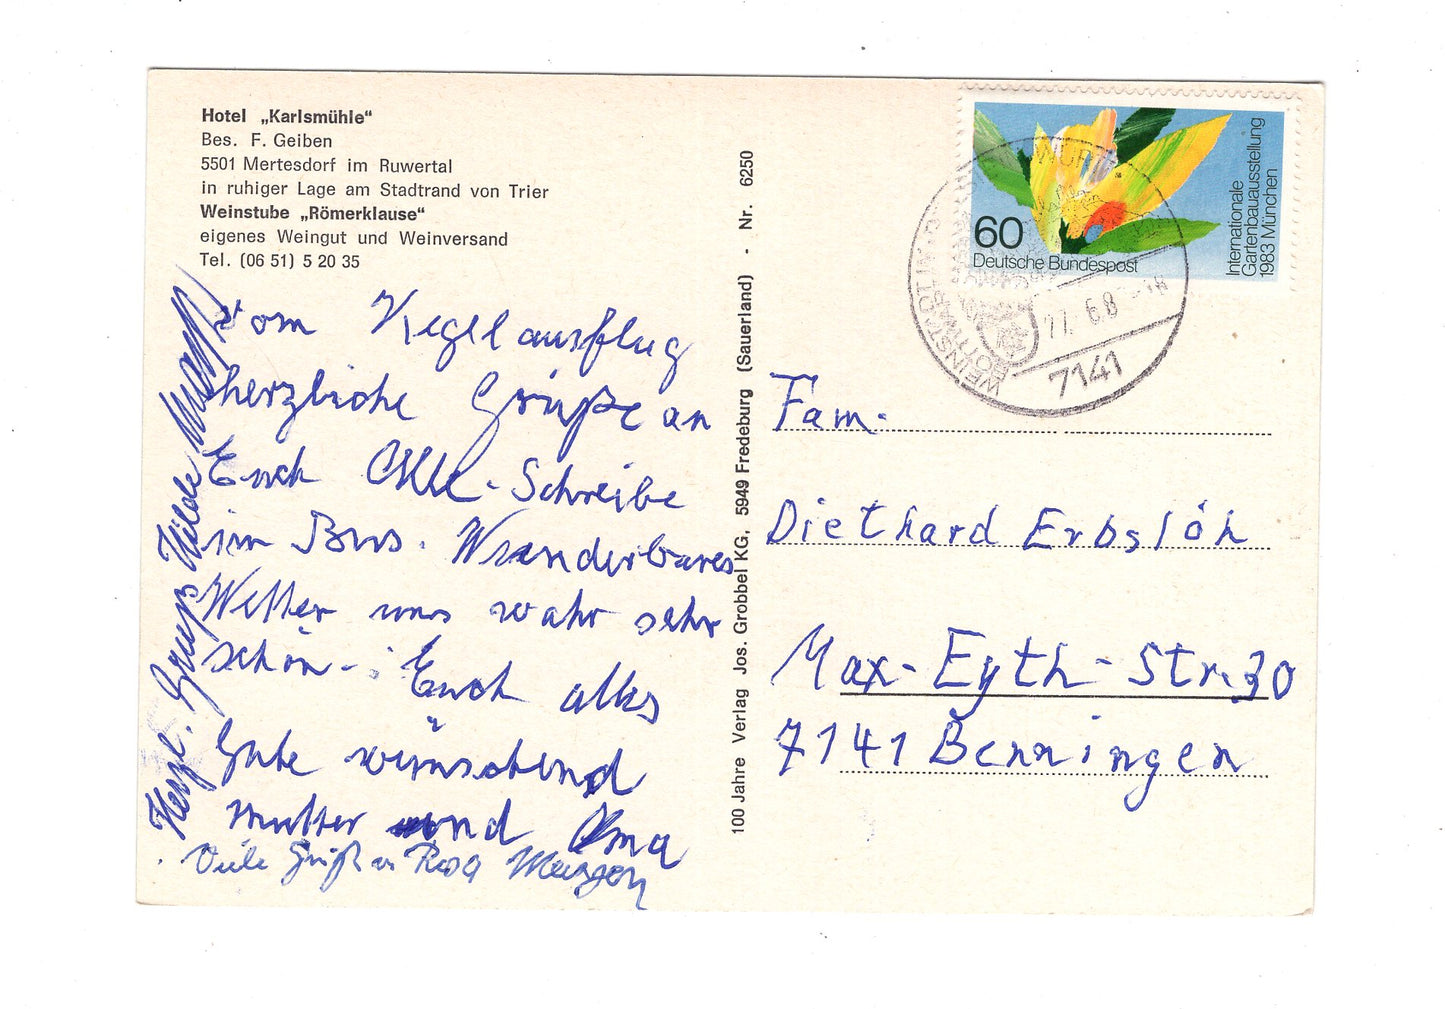 Hotel „Karlsmühle“
Bes. F. Geiben
5501 Mertesdorf im Ruwertal
in ruhiger Lage am Stadtrand von Trier
Weinstube „Römerklause“
eigenes Weingut und Weinversand
Tel. (06 51) 5 20 35
Vom Kegelausflug
herzliche Grüße an
Euch Alle. Schreibe
im Bus. Wunderbares
Wetter uns wahr sehr
schön. Euch alles
Gute wünschend
Mutter und Oma
Viele Grüße v. Rosa
Herzl. Gruß Hilde
100 Jahre Verlag Jos. Grobbel KG, 5949 Fredeburg (Sauerland) - Nr. 6250
60
Deutsche Bundespost
Internationale
Gartenbauausstellung
1983 München
7141
Fam.
Diethard Erbslöh
Max-Eyth-Str. 30
7141 Benningen